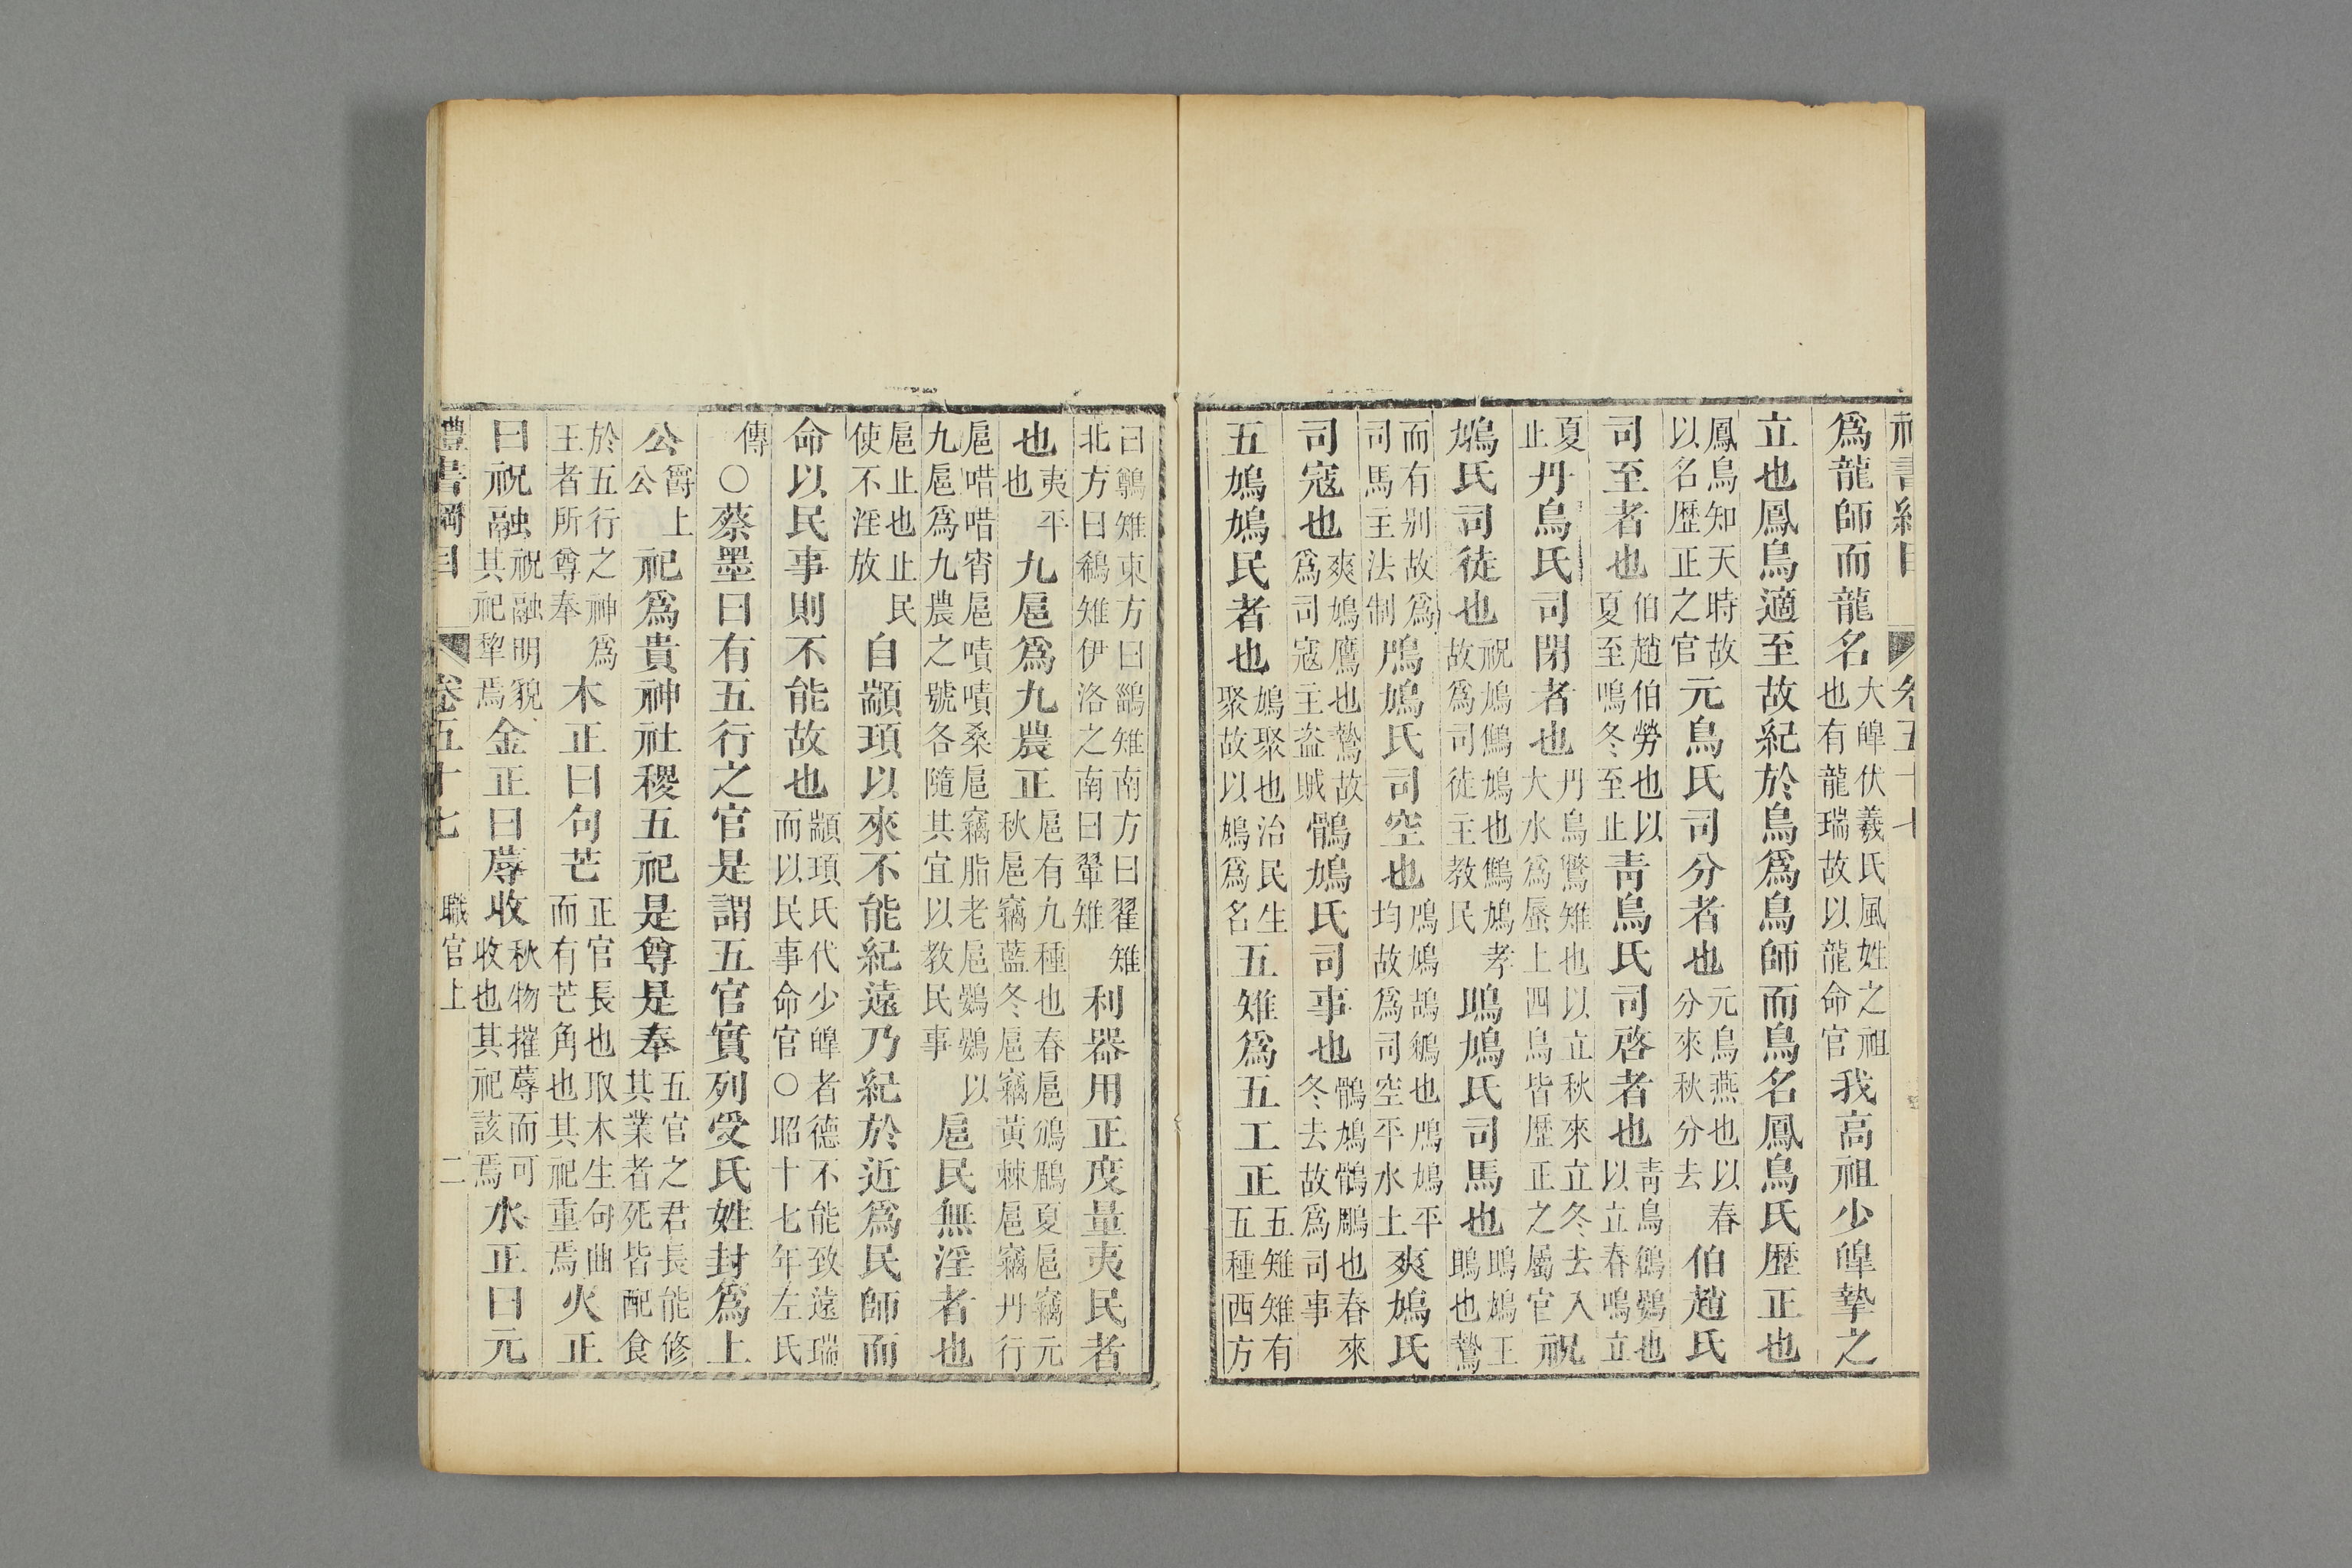 爲龍師而龍名大皥伏羲氏風姓之祖也有龍瑞故以龍命官我高祖少皥摯之
立也鳳鳥適至故紀於鳥爲鳥師而鳥名鳳鳥氏歷正也
鳳鳥知天時故以名歷正之官元鳥氏司分者也元鳥燕也以春分來秋分去伯趙氏
司至者也伯趙伯勞也以夏至鳴冬至止青鳥氏司啓者也青鳥鶬鷃也以立春鳴立
夏止丹鳥氏司閉者也丹鳥鷩雉也以立秋來立冬去入大水爲蜃上四鳥皆歷正之屬官祝
鳩氏司徒也祝鳩鷦鳩也鷦鳩孝故爲司徒主教民鴡鳩氏司馬也鴡鳩王鴡也鷙
而有别故爲司馬主法制鳲鳩氏司空也鳲鳩鴶鵴也鳲鳩平均故爲司空平水土爽鳩氏
司寇也爽鳩鷹也鷙故爲司寇主盗賊鶻鳩氏司事也鶻鳩鶻鵰也春來冬去故爲司事
五鳩鳩民者也鳩聚也治民生聚故以鳩爲名五雉爲五工正五雉雉有五種西方
曰鷷雉東方曰鶅雉南方曰翟雉北方曰鵗雉伊洛之南曰翬雉利器用正度量夷民者
也夷平也九扈爲九農正扈有九種也春扈鳻鶥夏扈竊元秋扈竊藍冬扈竊黃棘扈竊丹行
扈唶唶宵扈嘖嘖桑扈竊脂老扈鷃鷃以九扈爲九農之號各隨其宜以教民事扈民無淫者也
扈止也止民使不淫放自顓頊以來不能紀遠乃紀於近爲民師而
命以民事則不能故也顓頊氏代少皥者德不能致遠瑞而以民事命官○昭十七年左氏
傳○蔡墨曰有五行之官是謂五官實列受氏姓封爲上
公爵上公祀爲貴神社稷五祀是尊是奉五官之君長能修其業者死皆配食
於五行之神爲王者所尊奉木正曰句芒正官長也取木生句曲而有芒角也其祀重焉火正
曰祝融祝融明貌其祀犂焉金正曰蓐收秋物摧蓐而可收也其祀該焉水正曰元
禮書綱目 卷五十七 職官上 二